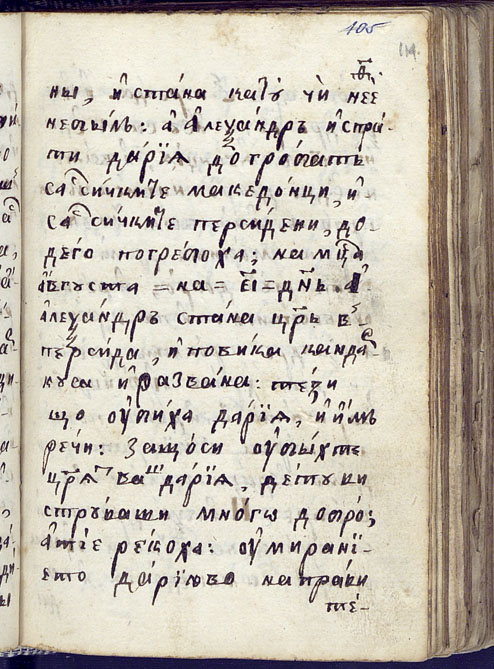 105
114
ны, и҆ ста́на като̀ чѝ не́е
не҆былъ: а҆ а҆леѯа́ндръ и҆спра́-
ти да́рїѧ до гро́батъ
са си́чките македо́нци, и҆
са си́чките перси́дени, до-
де́го погребо́ха; на мц҃а
а҆́вгуста = на = е҃і = дн҃ь. а҆
а҆леѯа́ндръ ста́на цр҃ь в
перси́да, и҆ пови́ка канда-
куса и҆ разва́на: те́ѕи
що ᲂу҆би́ха да́рїѧ, и҆ и҆́мъ
ре́чи: защо́си ᲂу҆би́хте
цр҃ѧ ва́ш да́рїѧ, де́то ви
стру́ваши мно́гѡ добро́;
а҆ ти́е реко́ха: ᲂу҆мира́нї-
ето да́рїюво напра́ви
те́-